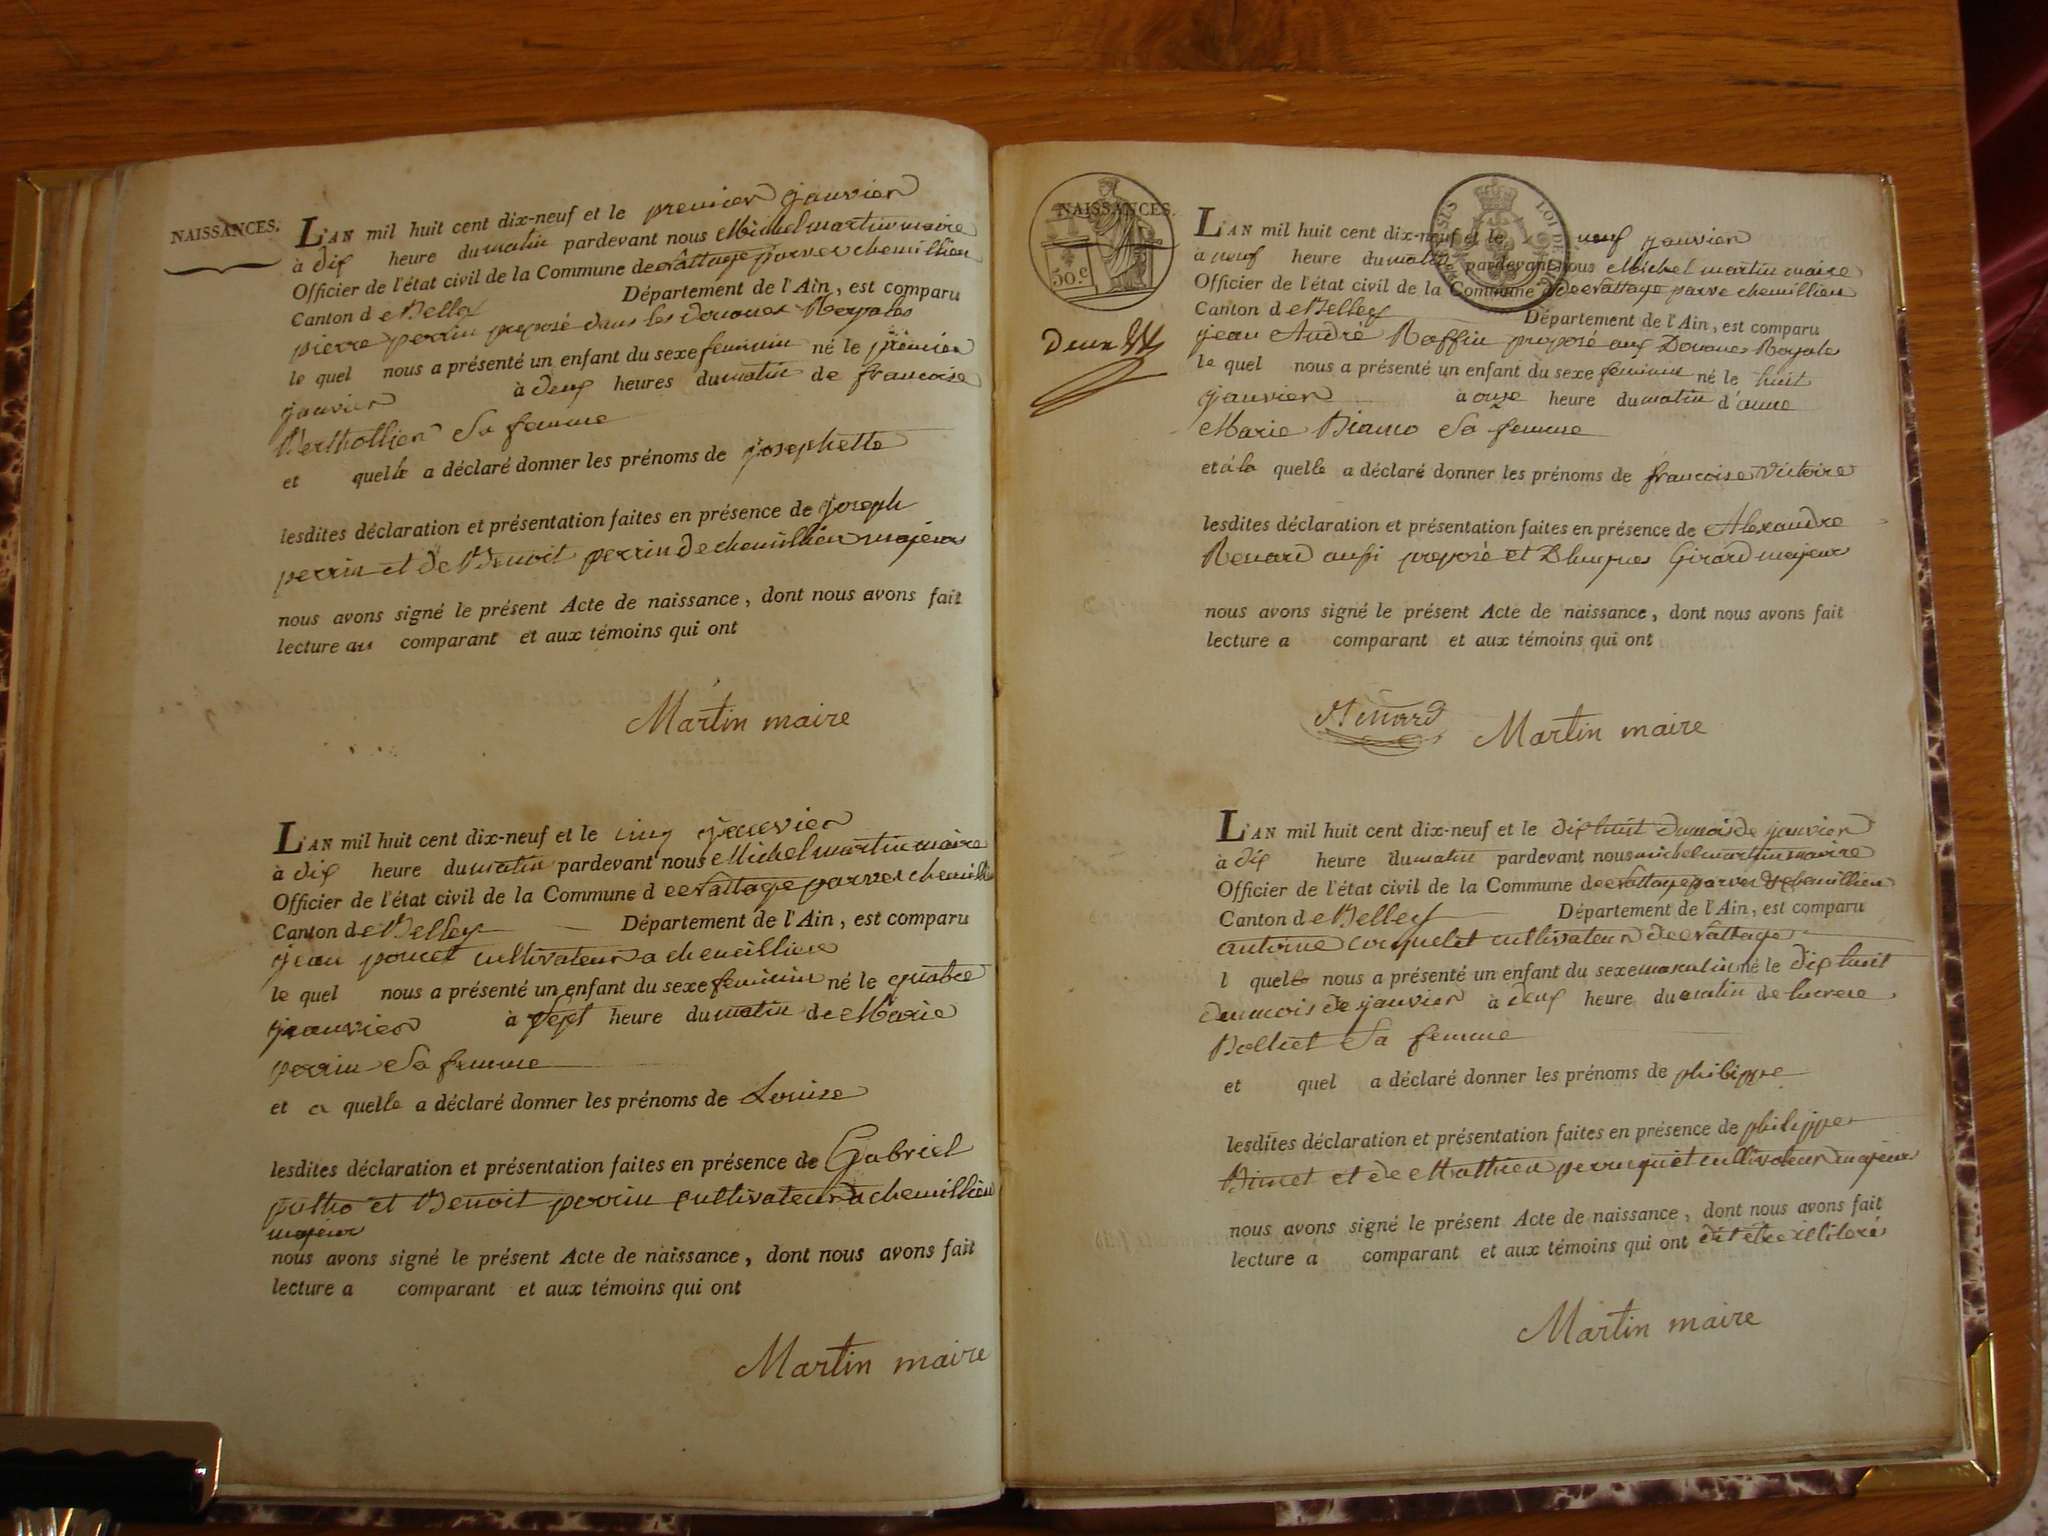 NAISSANCES.
L'AN mil huit cent dix-neuf et le premier janvier
à dix heure du matin pardevant nous Michel martin maire
Officier de l'état civil de la Commune de Nattage parves chemillien
Canton de Belley Département de l'Ain, est comparu
pierre perrin preposé dans les douanes Royales
le quel nous a présenté un enfant du sexe feminin né le premier
janvier à deux heures du matin de francoise
Berthollier Sa femme
et quelle a déclaré donner les prénoms de josephette
lesdites déclaration et présentation faites en présence de joseph
perrin et de Benoit perrin de chemillieu majeurs
nous avons signé le présent Acte de naissance, dont nous avons fait
lecture au comparant et aux témoins qui ont
Martin maire
L'AN mil huit cent dix-neuf et le cinq janvier
à dix heure du matin pardevant nous Michel martin maire
Officier de l'état civil de la Commune de Nattage parves chemillie
Canton de Belley Département de l'Ain, est comparu
jean poncet cultivateur a chemillieu
le quel nous a présenté un enfant du sexe feminin né le quatre
janvier à sept heure du matin de Marie
perrin Sa femme
et a quelle a déclaré donner les prénoms de Louise
lesdites déclaration et présentation faites en présence de Gabriel
et Benoit perrin cultivateur a chemillieu
majeur
nous avons signé le présent Acte de naissance, dont nous avons fait
lecture a comparant et aux témoins qui ont
Martin maire
NAISSANCES.
50.c
LOI DE
deux
L'AN mil huit cent dix-neuf et le neuf janvier
à neuf heure du matin pardevant nous Michel martin maire
Officier de l'état civil de la Commune de Nattage parve chemillieu
Canton de Belley Département de l'Ain, est comparu
jean André Raffin preposé aux Douanes Royales
le quel nous a présenté un enfant du sexe feminin né le huit
janvier à onze heure du matin d'anne
Marie Sa femme
et à la quelle a déclaré donner les prénoms de francoise Victoire
lesdites déclaration et présentation faites en présence de Alexandre
Renard aussi preposé et Girard majeurs
nous avons signé le présent Acte de naissance, dont nous avons fait
lecture a comparant et aux témoins qui ont
Renard Martin maire
L'AN mil huit cent dix-neuf et le dix huit du mois de janvier
à dix heure du matin pardevant nous michel martin maire
Officier de l'état civil de la Commune de Nattage parves & chemillieu
Canton de Belley Département de l'Ain, est comparu
antoine cultivateur de Nattage
l quel nous a présenté un enfant du sexe masculin né le dix huit
du mois de janvier à deux heure du matin de lucrece
Bolliet Sa femme
et quel a déclaré donner les prénoms de philippe
lesdites déclaration et présentation faites en présence de philippe
et de Mathieu perruquet cultivateur majeurs
nous avons signé le présent Acte de naissance, dont nous avons fait
lecture a comparant et aux témoins qui ont dit être illiteré
Martin maire